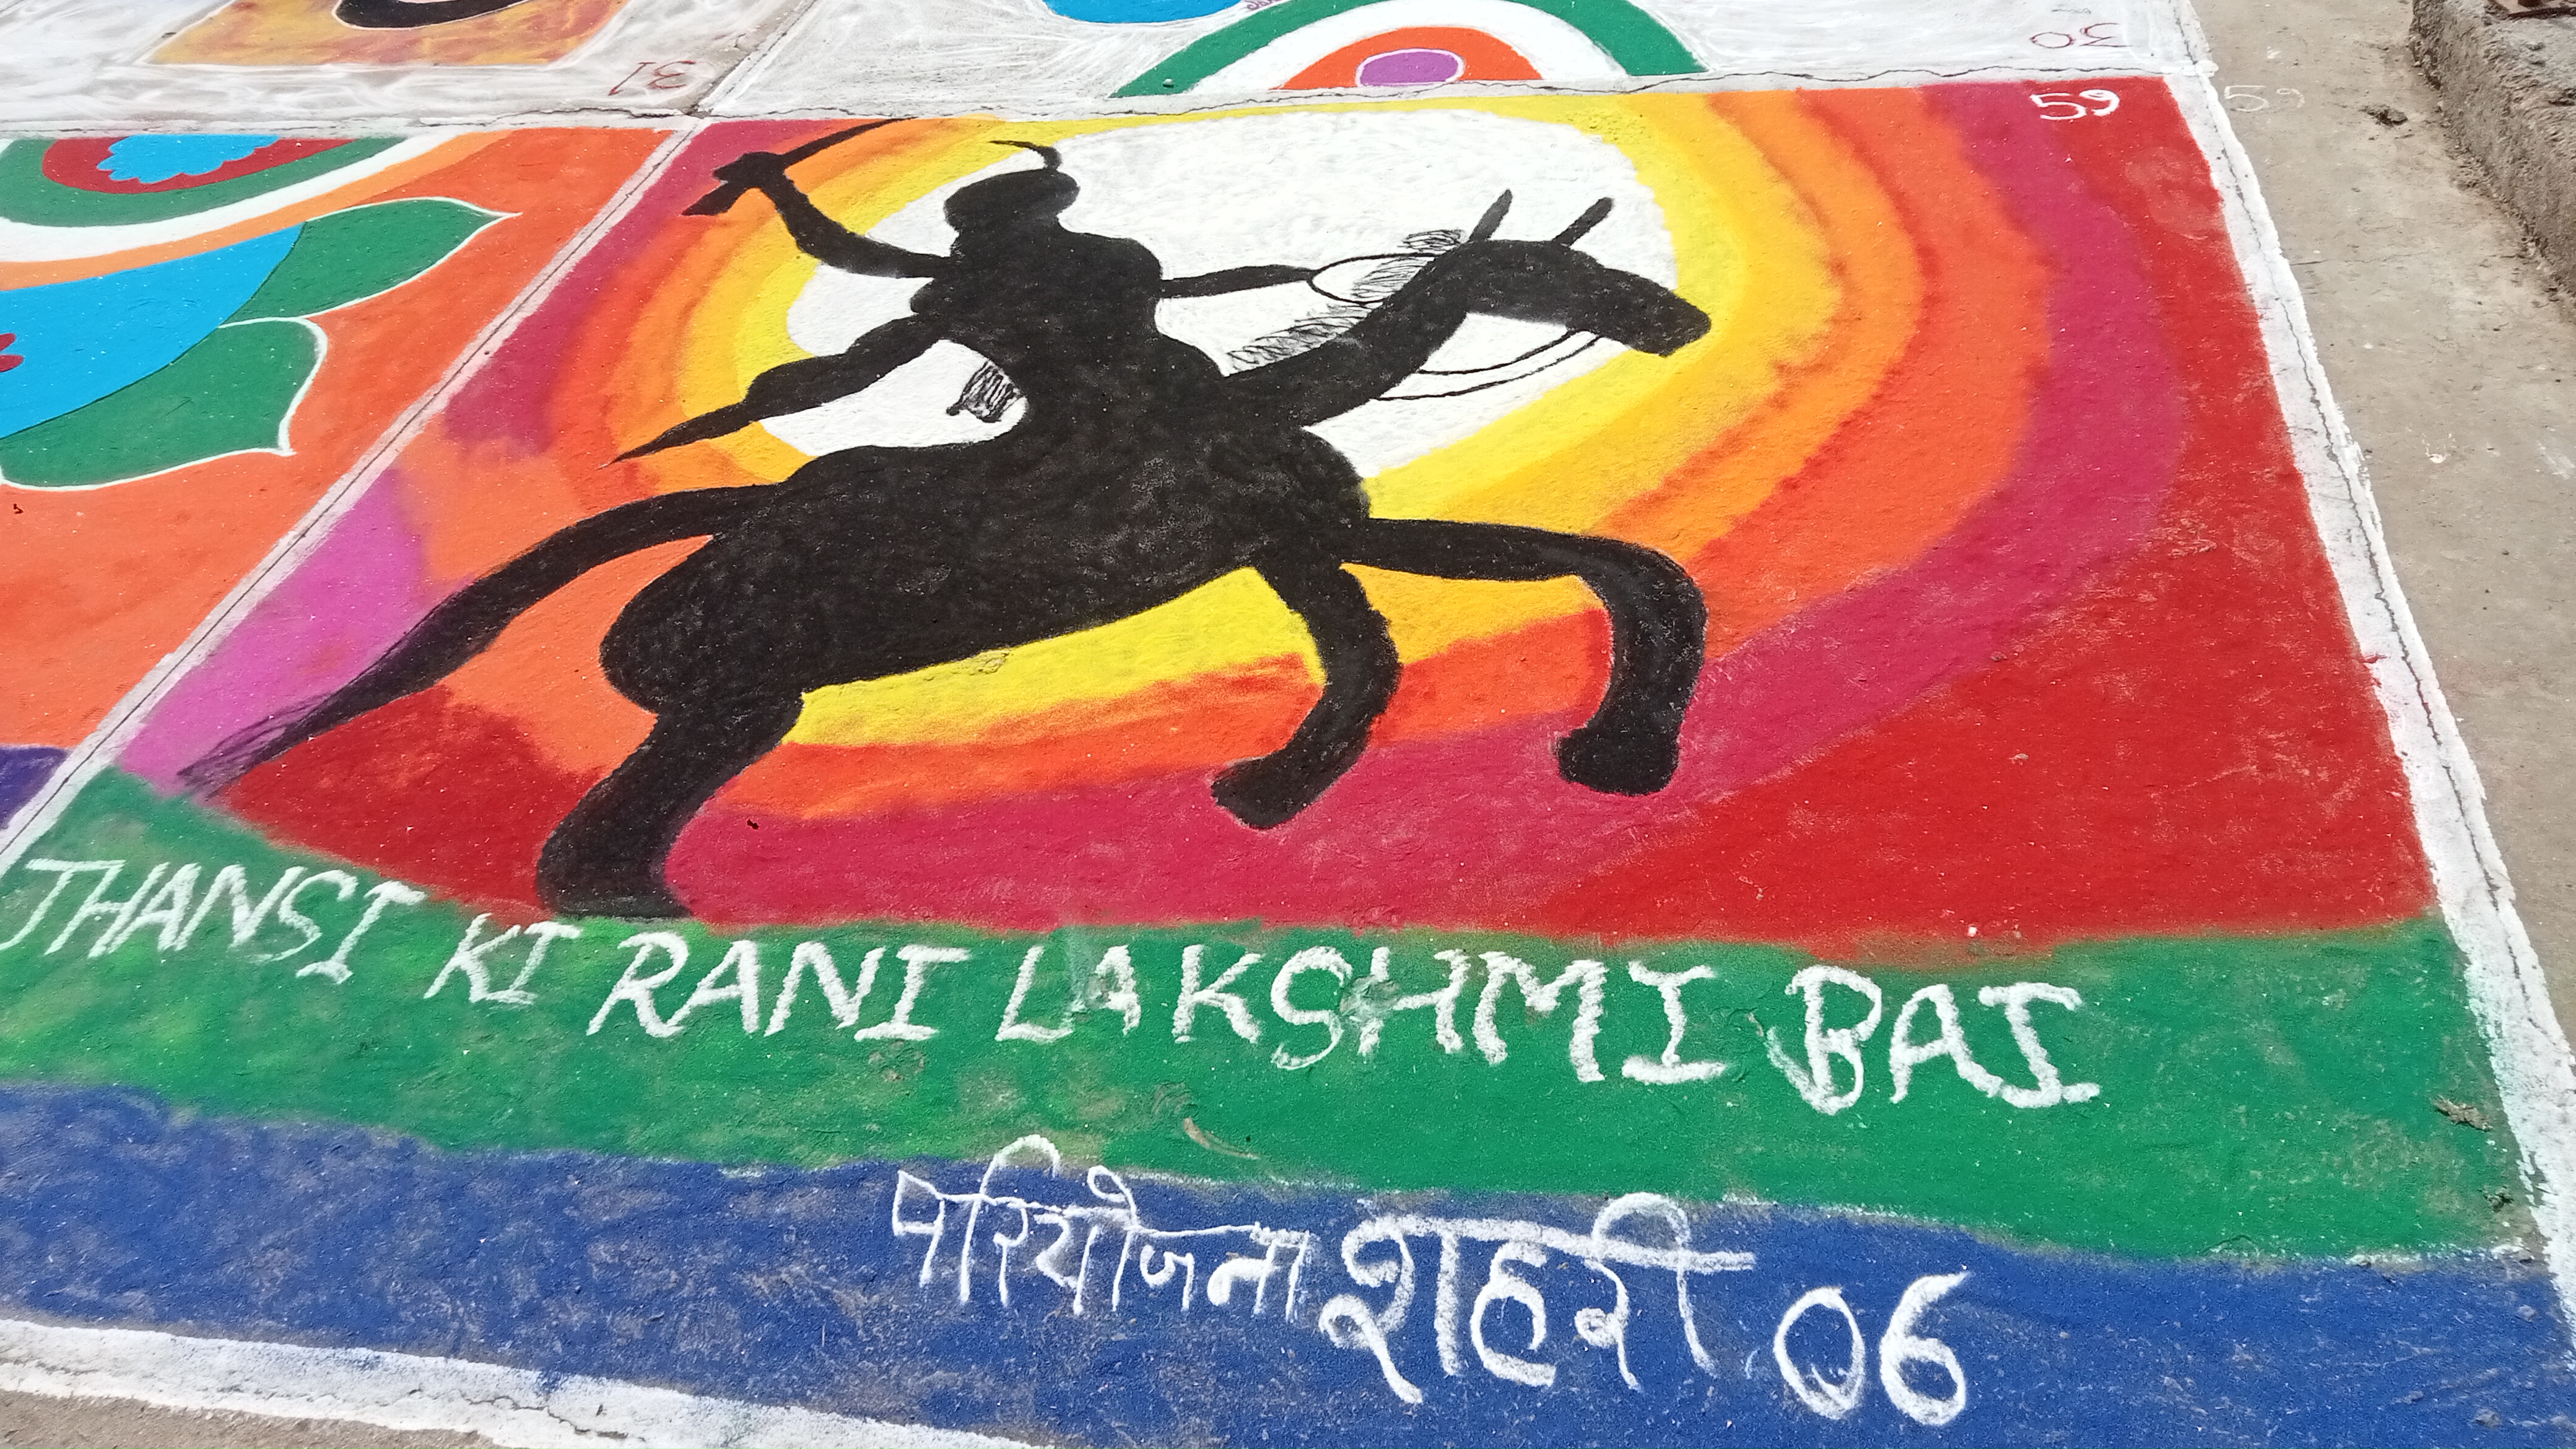 31
30
59
59
JHANSI KI RANI LAKSHMI BAI
परियोजना शहरी 06